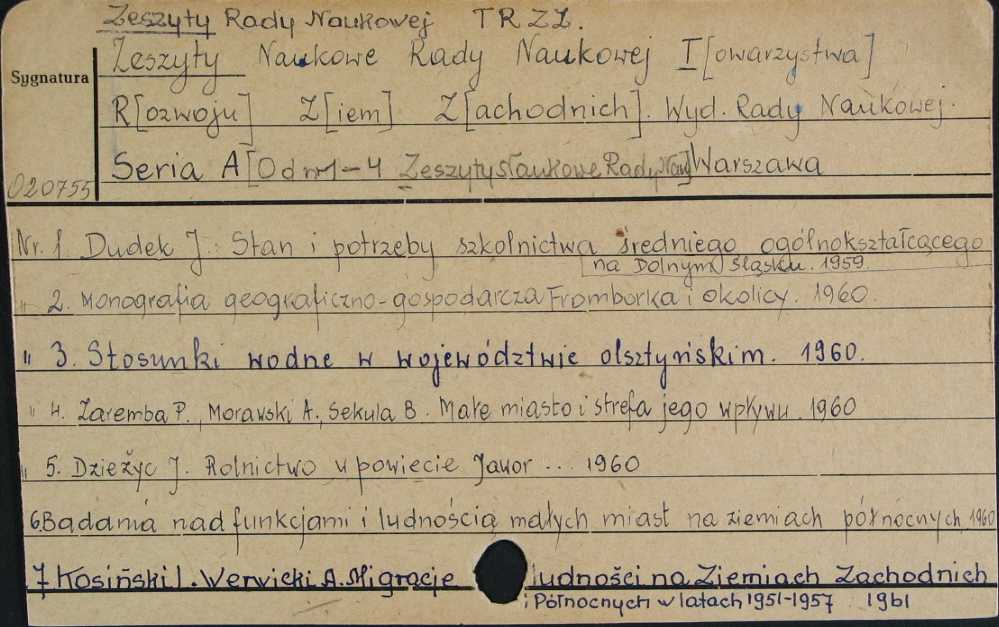 Zeszyty Rady Naukowej TRZZ.
Zeszyty Naukowe Rady Naukowej T[owarzystwa]
Sygnatura
R[ozwoju] Z[iem] Z[achodnich]. Wyd. Rady Naukowej.
Seria A [Od nr 1-4 Zeszyty Naukowe Rady Nauk] Warszawa
020755
Nr. 1 Dudek J. Stan i potrzeby szkolnictwa średniego ogólnokształcącego
na Dolnym Śląsku. 1959.
" 2. Monografia geograficzno-gospodarcza Fromborka i okolicy. 1960.
" 3. Stosunki wodne w województwie olsztyńskim. 1960.
" 4. Zaremba P., Morawski A., Sekula B. Małe miasto i strefa jego wpływu. 1960
" 5. Dzieżyc J. Rolnictwo w powiecie Jawor ... 1960
6 Badania nad funkcjami i ludnością małych miast na ziemiach północnych 1960
7 Kosiński L. Werwicki A. Migracje ludności na Ziemiach Zachodnich
i Północnych w latach 1951-1957 1961